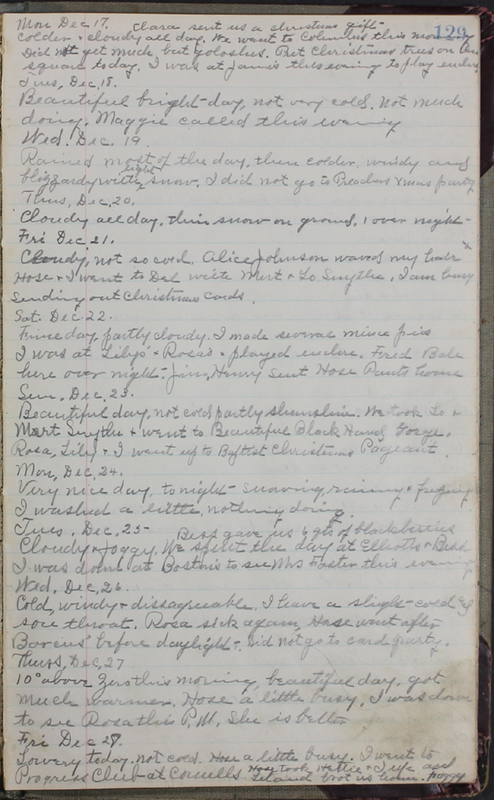 129
Mon Dec 17. Clara sent us a christmas gift
colder & cloudy all day. We went to Columbus this morning
Did not get much but goloshes. Put Christmas trees on the
square today. I was at Jamis this evening to play euchre
Tues, Dec, 18.
Beautiful bright day, not very cold. Not much
doing. Maggie called this evening
Wed. Dec. 19.
Rained most of the day, then colder, windy and
blizzardy with light snow. I did not go to Preachers Xmas party
Thus, Dec, 20,
Cloudy all day, thin snow on ground, 1 over night
Fri Dec 21.
Cloudy, not so cold. Alice Johnson waved my hair
Hose & I went to Del with Mert & Lo Smythe. I am busy
sending out Christmas cards.
Sat. Dec. 22.
Frine day, partly cloudy. I made several mince pies
I was at Lilys & Rosa's & played euchre. Fred Bale
here over night. Jim, Henry sent Hose Pants home
Sun, Dec, 23.
Beautiful day, not cold partly shunshine. We took Lo &
Mert Smythe & went to Beautiful Black Hand Gorge.
Rosa, Lily & I went up to Baptist Christmas Pageant.
Mon, Dec, 24.
Very nice day, to night snowing, raining & freezing
I washed a little, nothing doing.
Tues, Dec, 25- Bess gave us 6 qts of blackberries
Cloudy & foggy, We spent the day at Elliotts & Bess
I was down at Boston's to see Mrs Foster this evening
Wed, Dec, 26.
Cold, windy & dissagreeable. I have a sligh cold &
sore throat. Rosa sick again, Hose went after
before daylight. Did not go to card party.
Thurs, Dec, 27
10° above Zero this morning, beautiful day, got
much warmer, Hose a little busy, I was down
to see Rosa this P.M. She is better
Fri Dec 28.
Lowery today, not cold. Hose a little busy. I went to
Progress Club at Cornells Hose took Hettie & I up and
Leland brot us home. foggy